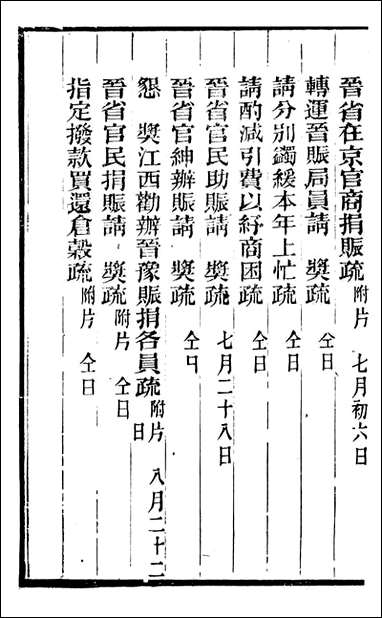 晉省在京官商捐賑疏 附片 七月初六日
轉運晉賑局員請 奬疏 仝日
請分別蠲緩本年上忙疏 仝日
請酌減引費以紓商困疏 仝日
晉省官民助賑請 奬疏 七月二十八日
晉省官紳辦賑請 奬疏 仝日
懇 奬江西勸辦晉豫賑捐各員疏 附片 八月二十二日
晉省官民捐賑請 奬疏 附片 仝日
指定撥款買還倉穀疏 附片 仝日